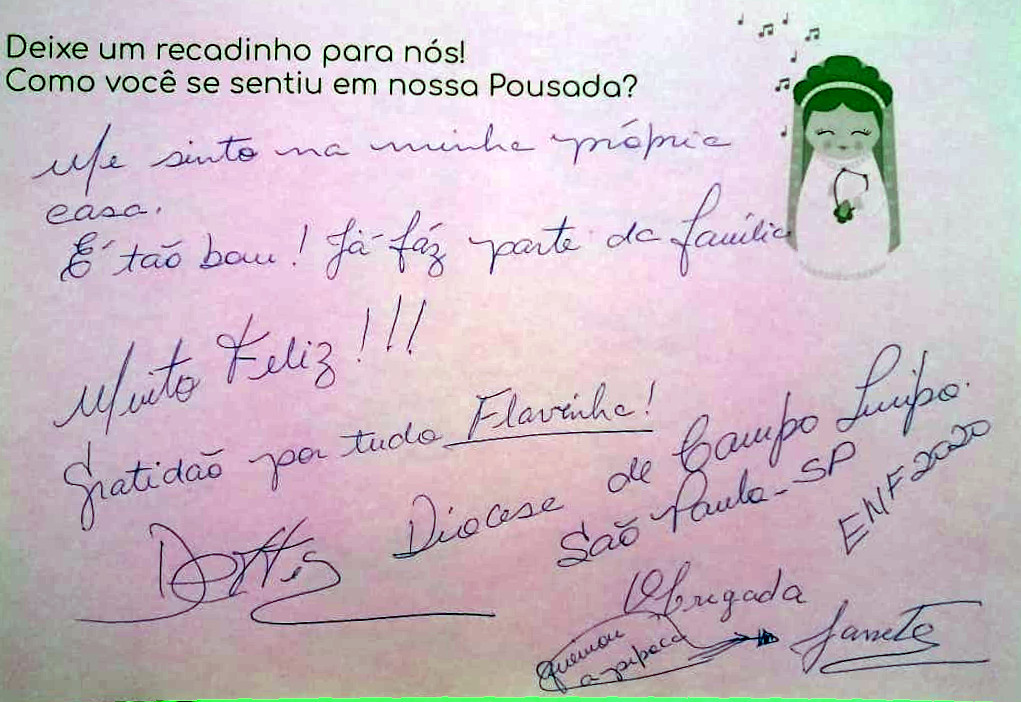 Deixe um recadinho para nós!
Como você se sentiu em nossa Pousada?
Me sinto na minha própria
casa.
É tão bom! Já fáz parte da família
Muito Feliz!!!
Gratidão por tudo Flavinha!
Diocese de Campo Limpo.
São Paulo - SP
ENF 2020
Obrigada
queimou
a pipoca
Janete